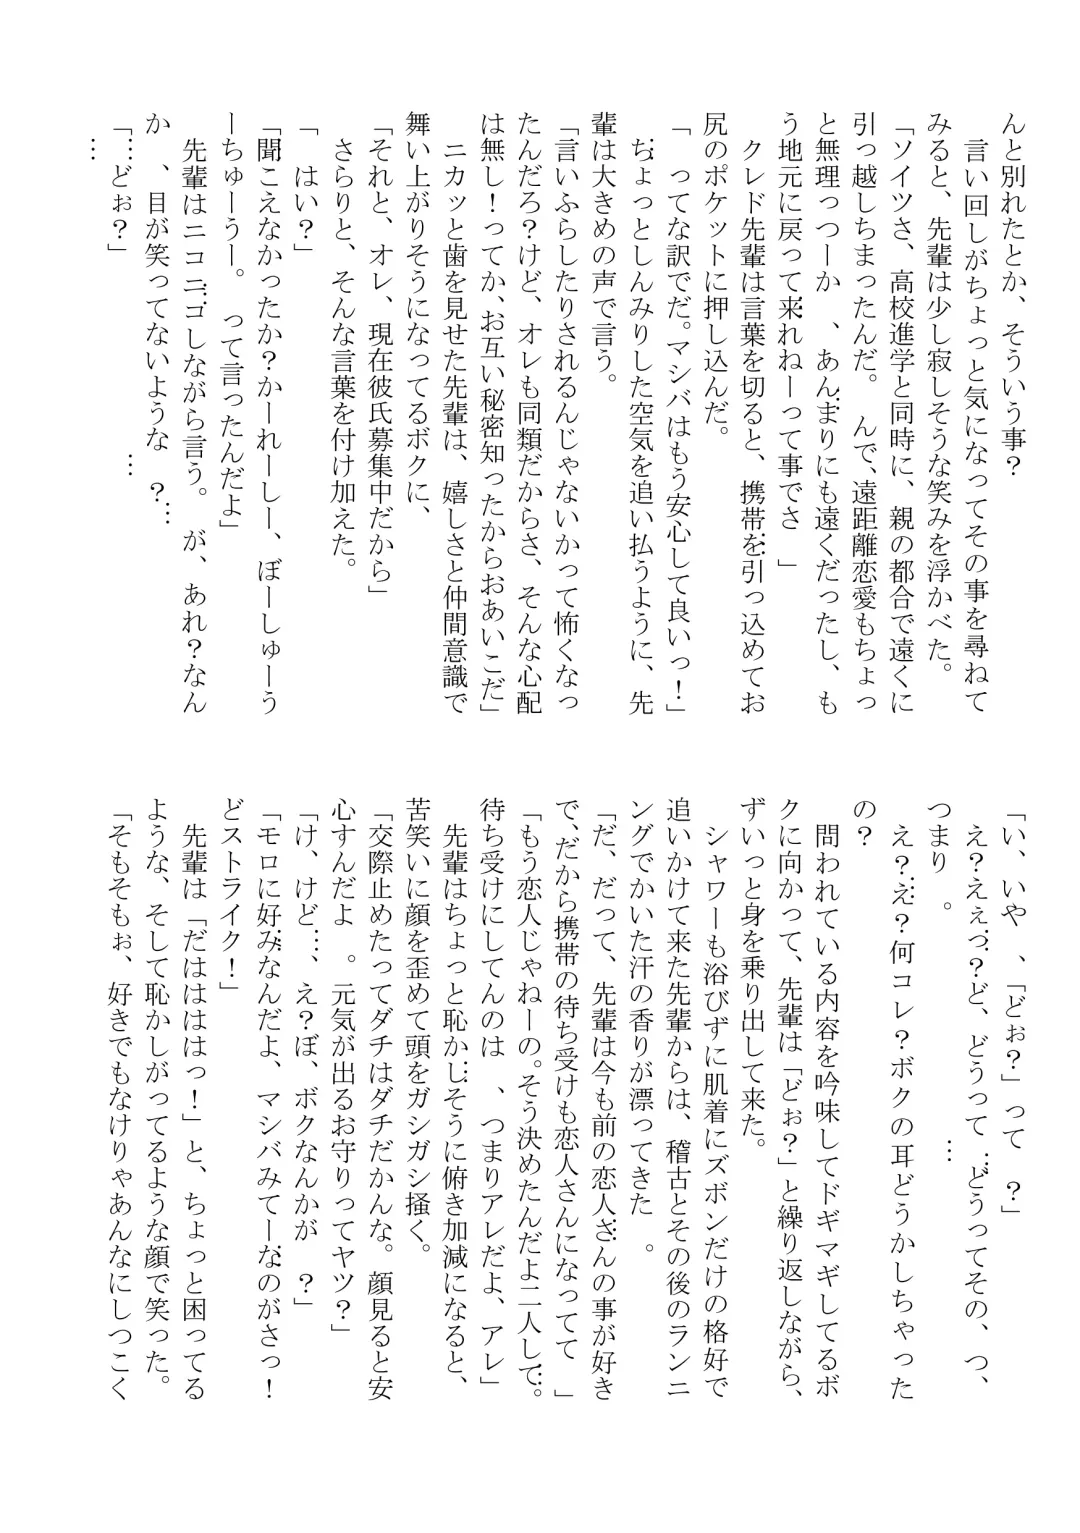 んと別れたとか、そういう事？
　言い回しがちょっと気になってその事を尋ねて
みると、先輩は少し寂しそうな笑みを浮かべた。
「ソイツさ、高校進学と同時に、親の都合で遠くに
引っ越しちまったんだ。　んで、遠距離恋愛もちょっ
と無理っつーか　、あんまりにも遠くだったし、も
う地元に戻って来れねーって事でさ…」
　クレド先輩は言葉を切ると、携帯を引っ込めてお
尻のポケットに押し込んだ。
「…ってな訳でだ。マシバはもう安心して良いっ！」
　ちょっとしんみりした空気を追い払うように、先
輩は大きめの声で言う。
「言いふらしたりされるんじゃないかって怖くなっ
たんだろ？けど、オレも同類だからさ、そんな心配
は無し！ってか、お互い秘密知ったからおあいこだ」
　ニカッと歯を見せた先輩は、嬉しさと仲間意識で
舞い上がりそうになってるボクに、
「それと、オレ、現在彼氏募集中だから」
　さらりと、そんな言葉を付け加えた。
「…はい？」
「聞こえなかったか？かーれーしー、ぼーしゅーう
ーちゅーうー。　って言ったんだよ」
　先輩はニコニコしながら言う。　が、あれ？なん
か…、目が笑ってないような…？…
「…どぉ？」
「い、いや…、「どぉ？」って…？」
　え？ええっ？ど、どうって…どうってその、つ、
つまり…。
　え？え？何コレ？ボクの耳どうかしちゃった
の？
　問われている内容を吟味してドギマギしてるボ
クに向かって、先輩は「どぉ？」と繰り返しながら、
ずいっと身を乗り出して来た。
　シャワーも浴びずに肌着にズボンだけの格好で
追いかけて来た先輩からは、稽古とその後のランニ
ングでかいた汗の香りが漂ってきた…。
「だ、だって、先輩は今も前の恋人さんの事が好き
で、だから携帯の待ち受けも恋人さんになってて…」
「もう恋人じゃねーの。そう決めたんだよ二人して。
待ち受けにしてんのは…、つまりアレだよ、アレ」
　先輩はちょっと恥かしそうに俯き加減になると、
苦笑いに顔を歪めて頭をガシガシ掻く。
「交際止めたってダチはダチだかんな。顔見ると安
心すんだよ…。元気が出るお守りってヤツ？」
「け、けど…、え？ぼ、ボクなんかが…？」
「モロに好みなんだよ、マシバみてーなのがさっ！
どストライク！」
　先輩は「だはははははっ！」と、ちょっと困ってる
ような、そして恥かしがってるような顔で笑った。
「そもそもぉ、好きでもなけりゃあんなにしつこく